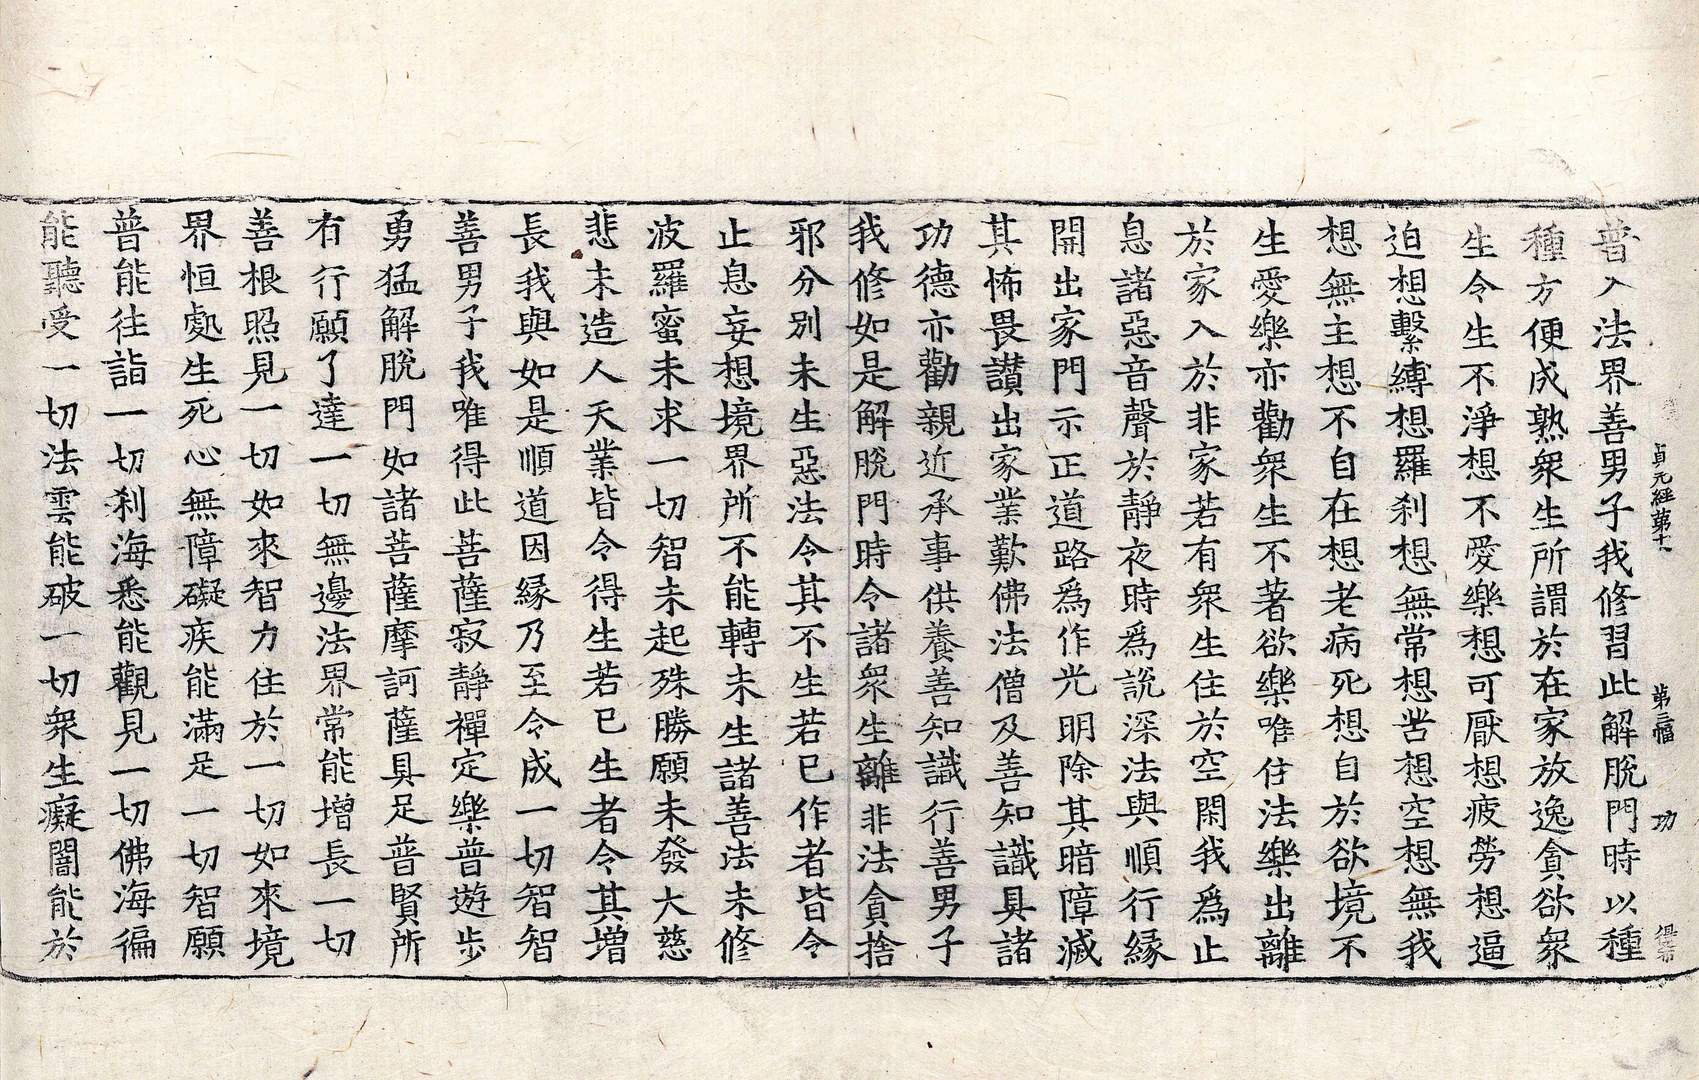 普入法界善男子我修習此解脫門時以種
種方便成熟衆生所謂於在家放逸貪欲衆
生令生不淨想不愛樂想可厭想疲勞想逼
迫想繫縛想羅刹想無常想苦想空想無我
想無主想不自在想老病死想自於欲境不
生愛樂亦勸衆生不著欲樂唯住法樂出離
於家入於非家若有衆生住於空閑我爲止
息諸惡音聲於靜夜時爲說深法與順行緣
開出家門示正道路爲作光明除其暗障滅
其怖畏讃出家業歎佛法僧及善知識具諸
功德亦勸親近承事供養善知識行善男子
我修如是解脫門時令諸衆生離非法貪捨
邪分別未生惡法令其不生若已作者皆令
止息妄想境界所不能轉未生諸善法未修
波羅蜜未求一切智未起殊勝願未發大慈
悲未造人天業皆令得生若已生者令其增
長我與如是順道因緣乃至令成一切智智
善男子我唯得此菩薩寂靜禪定樂普遊步
勇猛解脫門如諸菩薩摩訶薩具足普賢所
有行願了達一切無邊法界常能增長一切
善根照見一切如來智力住於一切如來境
界恒處生死心無障礙疾能滿足一切智願
普能往詣一切刹海悉能觀見一切佛海徧
能聽受一切法雲能破一切衆生癡闇能於
貞元經第十八 第三幅 功